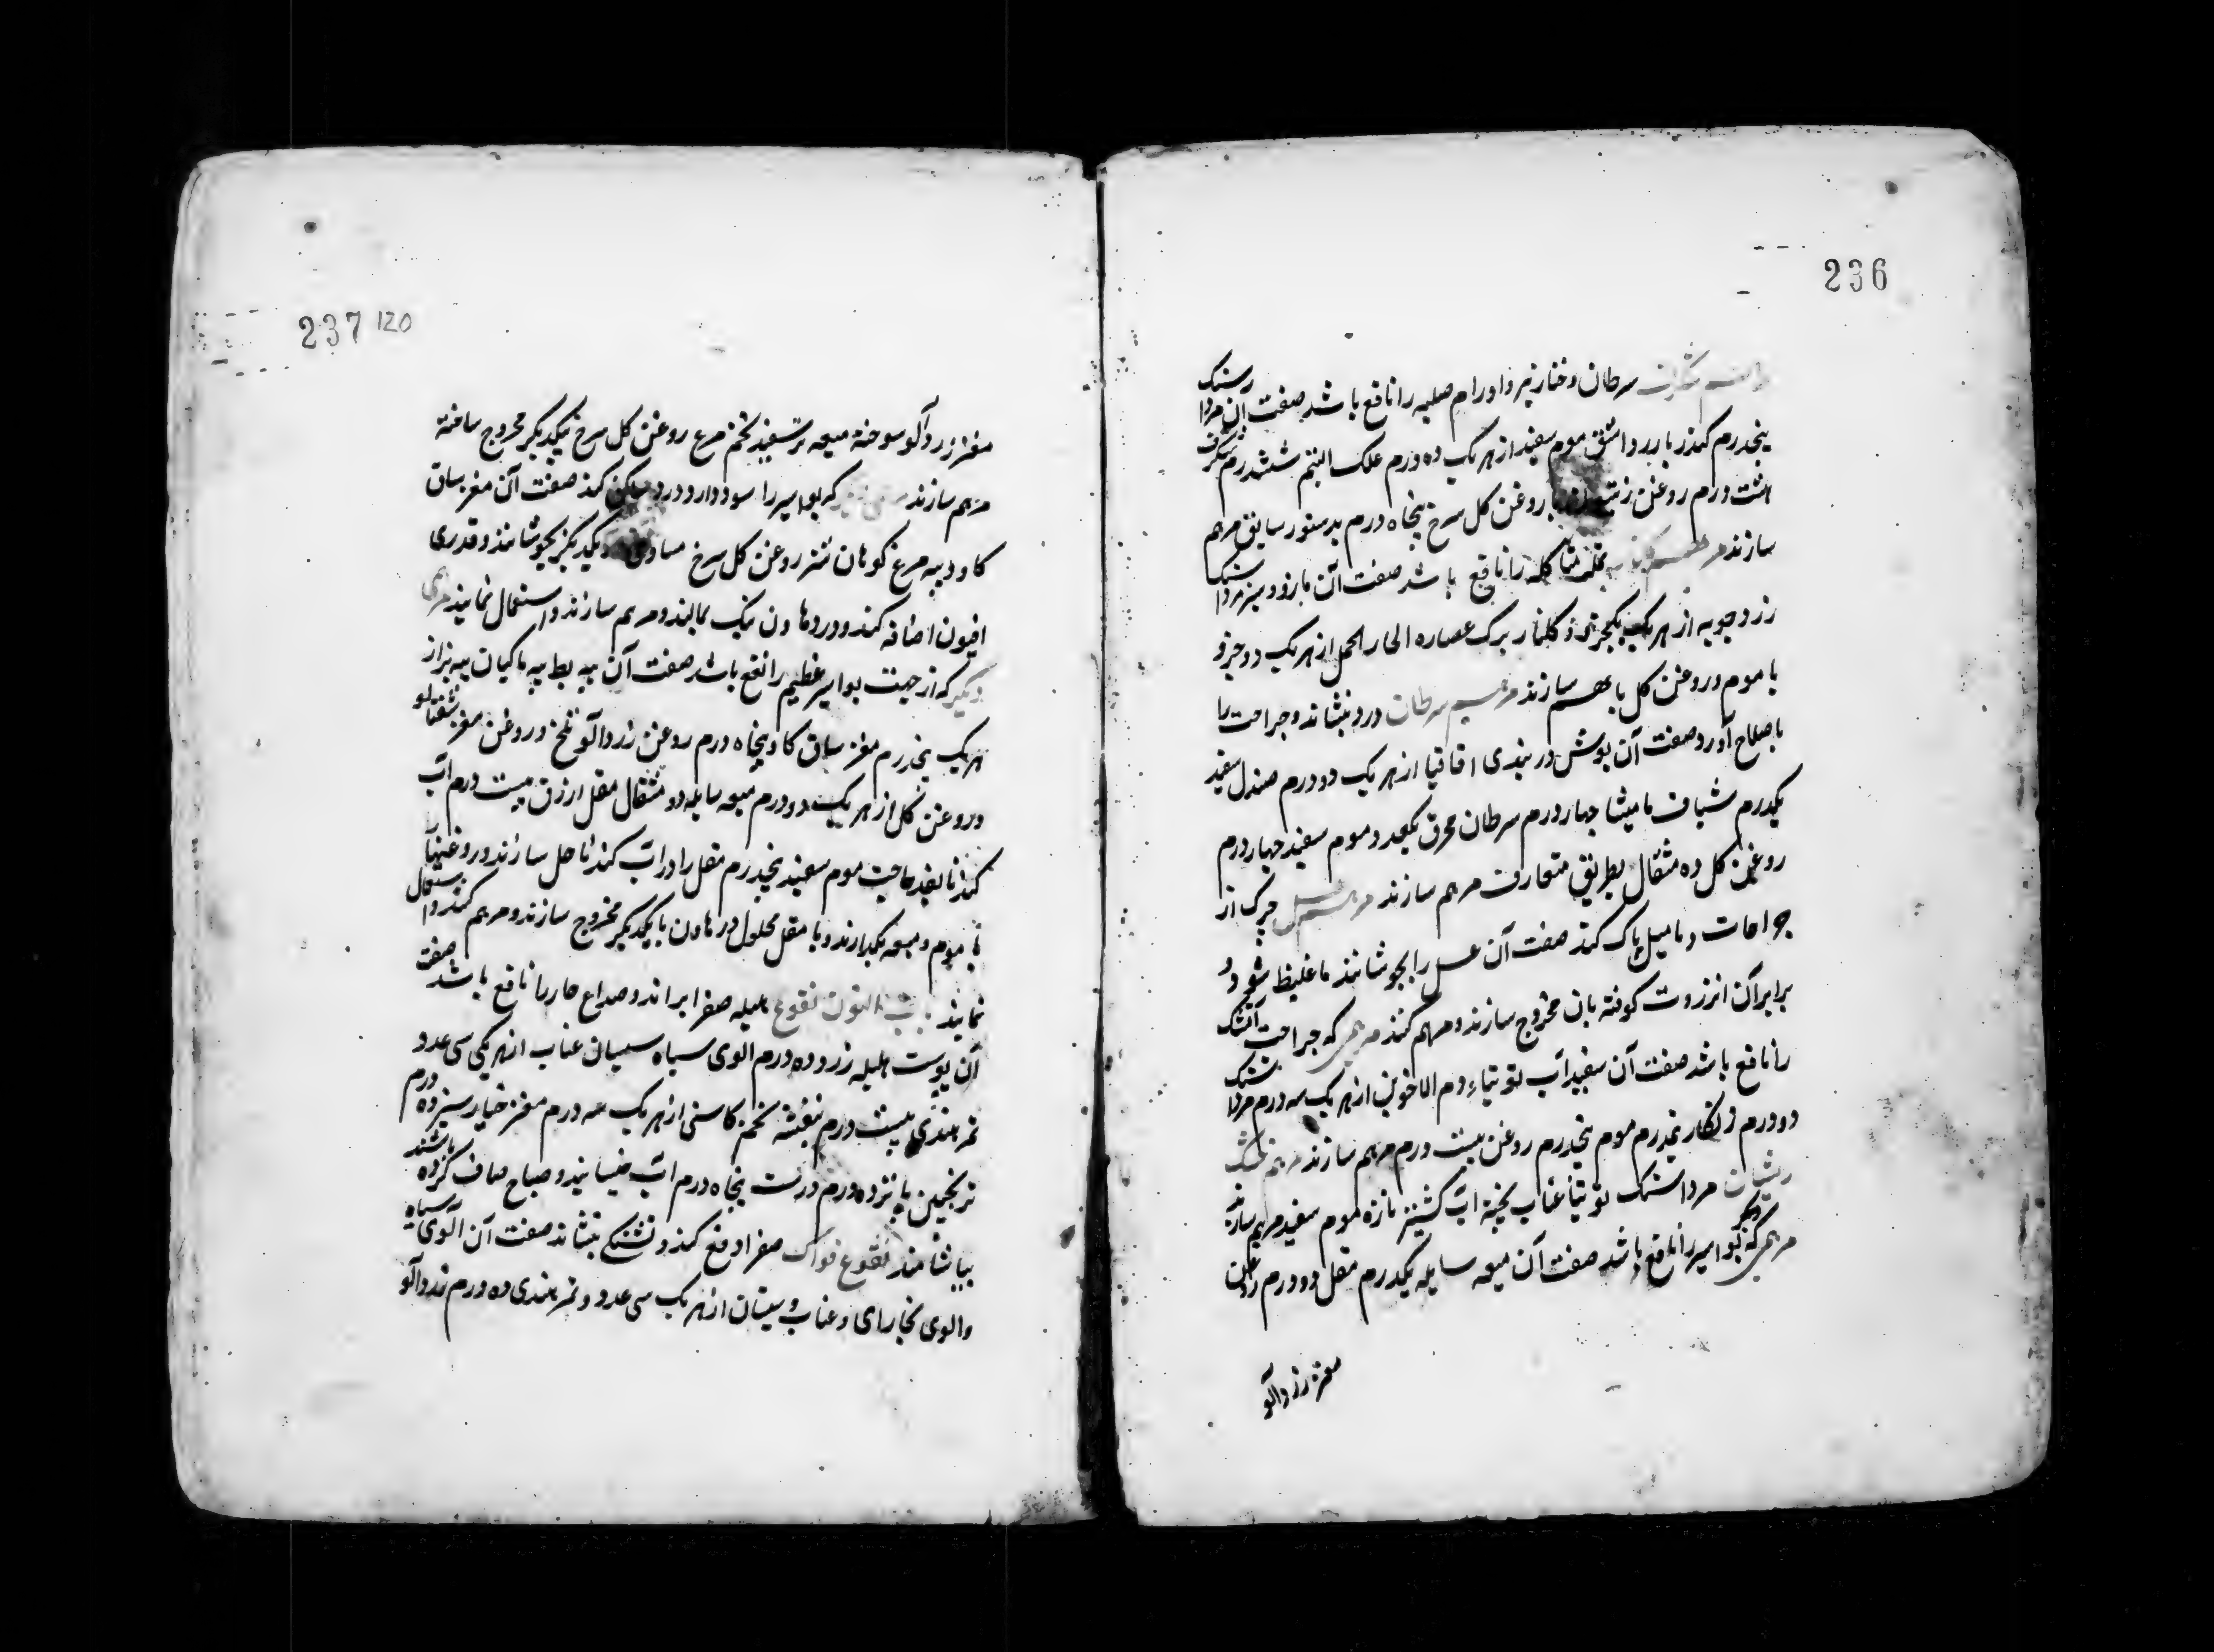 236
سرطان و خنازیر و اورام صلبه را نافع باشد صفت آن مرداسنک
پنجدرم کندر بارزد اشق موم سفید از هریک ده درم علک البتم ششدرم شنکرف
هشت درم روغن زیت روغن کل سرخ پنجاه درم بدستور سابق مرهم
سازند مرهم نمله متاکله را نافع باشد صفت آن مازو سبز مرداسنک
زردچوبه از هریک یکجزو کلنار برک عصاره الحمل از هریک دو جزو
با موم و روغن کل باهم سازند مرهم سرطان درد بنشاند و جراحت را
باصلاح آورد صفت آن بوش دربندی اقاقیا از هریک دو درم صندل سفید
یکدرم شیاف مامیثا چهار درم سرطان محرق یکعدد موم سفید چهار درم
روغن کل ده مثقال بطریق متعارف مرهم سازند مرهم عسل چرک از
جراحات و مامیل پاک کند صفت آن عسل را بجوشانند تا غلیظ شود و
برابر آن انزروت کوفته بان مخروج سازند و مرهم کنند مرهمی که جراحت آتشک
را نافع باشد صفت آن سفیدآب توتیاء دم الاخوین از هریک سه درم مرداسنک
دو درم زنکار نیمدرم موم پنجدرم روغن بیست درم مرهم سازند مرهم خشک
ریشان مرداسنک توتیا عناب پخته آب کشنیز تازه موم سفید مرهم سازند
مرهمی دیگر که بواسیر را نافع باشد صفت آن میعه سایله یکدرم مقل دو درم روغن
مغز زردآلو
237 120
مغز زردآلو سوخته میعه تر سفید تخم مرغ روغن کل سرخ بیکدیکر مخروج ساخته
مرهم سازند که بواسیر را سود دارد و درد ساکن کند صفت آن مغز ساق
کاو و پیه مرغ کوهان شتر روغن کل سرخ مساوی بیکدیکر بجوشانند و قدری
افیون اضافه کنند و در هاون نیک بمالند و مرهم سازند و استعمال نمایند مرهمی
دیگر که از جهت بواسیر عظیم را نافع باشد صفت آن پیه بط پیه ماکیان پیه بز از
هریک پنجدرم مغز ساق کاو پنجاه درم روغن زردآلو تلخ و روغن مغز شفتالو
و روغن کل از هریک دو درم میعه سایله دو مثقال مقل ازرق بیست درم آب
کندنا بقدر حاجت موم سفید پنجدرم مقل را در آب کندنا حل سازند و روغنها را
با موم و میعه بکدازند و با مقل محلول در هاون بایکدیکر مخروج سازند و مرهم کنند و استعمال
نمایند باب النون نقوع هلیله صفرا براند و صداع حار را نافع باشد صفت
آن پوست هلیله زرد ده درم الوی سیاه سپستان عناب از هریکی سی عدد
تمر هندی بیست درم بنفشه تخم کاسنی از هریک سه درم مغز خیار سبز ده درم
ترنجبین پانزده درم در سه پنجاه درم آب خیسانید و صباح صاف کرده باشند
بیاشامند نقوع فواکه صفرا دفع کند و تشنکی بنشاند صفت آن آلوی سیاه
و الوی بخارای و عناب و سپستان از هریک سی عدد و تمر هندی ده درم زردآلو